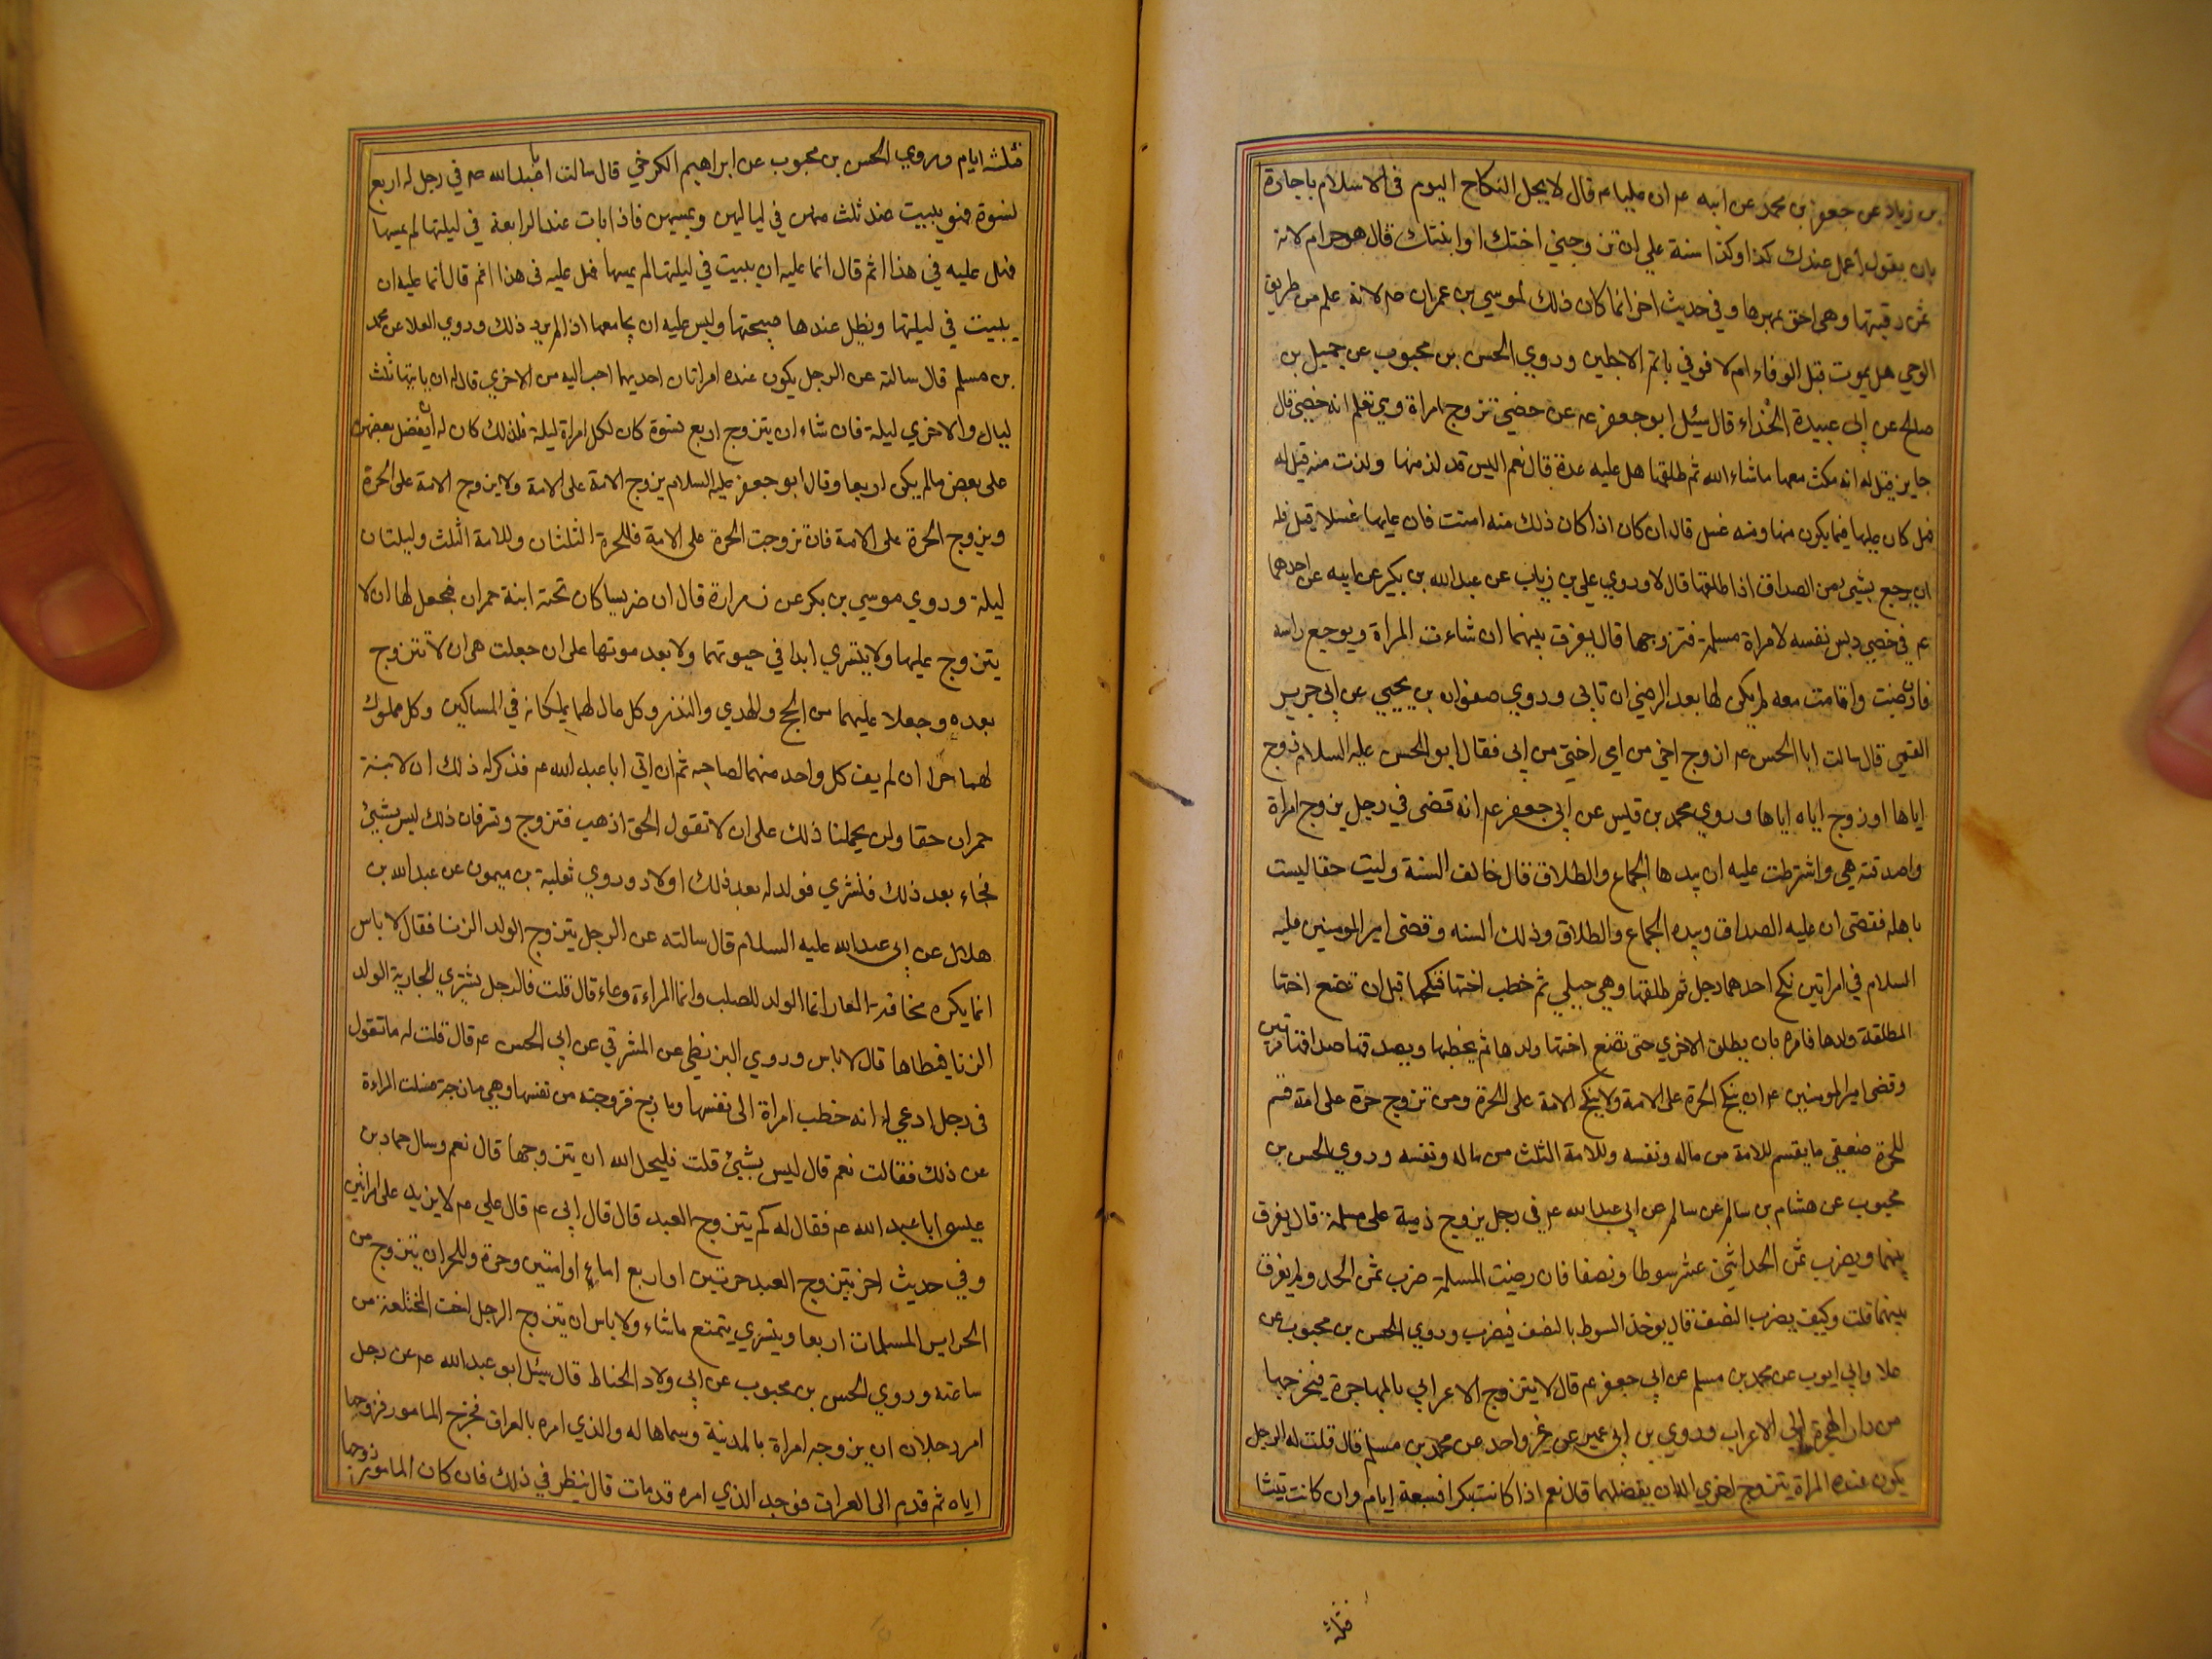 بن زياد عن جعفر بن محمد عن ابيه عم ان عليا عم قال لا يحل النكاح اليوم فى الاسلام باجارة
بان يقول اعمل عندك كذا وكذا سنة على ان تزوجني اختك او ابنتك قال هو حرام لانه
ثمن رقبتها وهى احق بمهرها وفي حديث اخر انما كان ذلك لموسي بن عمران عم لانه علم من طريق
الوحي هل يموت قبل الوفاء ام لا فوفي باتم الاجلين وروي الحسن بن محبوب عن جميل بن
صالح عن ابي عبيدة الحذاء قال سئل ابو جعفر عم عن خصي تزوج امراة وهي تعلم انه خصي قال
جايز فقيل له انه مكث معها ما شاء الله ثم طلقها هل عليه عدة قال نعم اليس قد لذ منها ولذت منه قيل له
فهل كان عليها فيما يكون منها ومنه غسل قال ان كان اذا كان ذلك منه امنت فان عليها غسلا قيل فله
ان يرجع بشيء من الصداق اذا طلقها قال لا وروي علي بن زياب عن عبد الله بن بكير عن ابيه عن احدهما
عم في خصي دلس نفسه لامراة مسلمة فتزوجها قال يفرق بينهما ان شاءت المراة ويوجع راسه
فان رضيت واقامت معه لم يكن لها بعد الرضي ان تابى وروي صفوان بن يحيي عن ابي جرير
القمي قال سالت ابا الحسن عم ازوج اخي من امي اختي من ابي فقال ابو الحسن عليه السلام زوج
اياها او زوج اياه اياها وروي محمد بن قيس عن ابي جعفر عم انه قضى في رجل يزوج امراة
واصدقته هي واشترطت عليه ان بيدها الجماع والطلاق قال خالف السنة وليت حقا ليست
باهله فقضى ان عليه الصداق وبيده الجماع والطلاق وذلك السنه وقضى امير المومنين عليه
السلام في امراتين نكح احدهما رجل ثم طلقها وهي حبلي ثم خطب اختها فنكحها قبل ان تضع اختها
المطلقة ولدها فامره بان يطلق الاخري حتى تضع اختها ولدها ثم يخطبها ويصدقها صداقا مرتين
وقضى امير المومنين عم ان ينكح الحرة على الامة ولا ينكح الامة على الحرة ومن تزوج حرة على امة قسم
للحرة ضعفي ما يقسم للامة من ماله ونفسه وللامة الثلث من ماله ونفسه وروي الحسن بن
محبوب عن هشام بن سالم عن سالم عن ابي عبد الله عم في رجل يزوج ذمية على مسلمة قال يفرق
بينهما ويضرب ثمن الحد اثنى عشر سوطا ونصفا فان رضيت المسلمة ضرب ثمن الحد ولم يفرق
بينهما قلت وكيف يضرب النصف قال يوخذ السوط بالنصف فيضرب وروي الحسن بن محبوب عن
علا وابي ايوب عن محمد بن مسلم عن ابي جعفر عم قال لا يتزوج الاعرابي بالمهاجرة فيخرجها
من دار الهجرة الى الاعراب وروي بن ابى عمير عن غير واحد عن محمد بن مسلم قال قلت له الرجل
يكون عنده المراة يتزوج اخري اله ان يفضلهما قال نعم اذا كانت بكرا فسبعة ايام وان كانت ثيبا
فثلثة
فثلثة ايام وروي الحسن بن محبوب عن ابراهيم الكرخي قال سالت ابا عبد الله عم في رجل له اربع
نسوة فهو يبيت عند ثلث منهن في لياليهن ويمسهن فاذا بات عند الرابعة في ليلتها لم يمسها
فهل عليه في هذا اثم قال انما عليه ان يبيت في ليلتها لم يمسها فهل عليه فى هذا اثم قال انما عليه ان
يبيت في ليلتها ويظل عندها صبيحتها وليس عليه ان يجامعها اذا لم يرد ذلك وروي العلا عن محمد
بن مسلم قال سالته عن الرجل يكون عنده امراتان احديهما احب اليه من الاخري قال له ان ياتيها ثلث
ليال والاخري ليلة فان شاء ان يتزوج اربع نسوة كان لكل امراة ليلة فلذلك كان له ان يفضل بعضهن
على بعض ما لم يكن اربعا وقال ابو جعفر عليه السلام يزوج الامة على الامة ولا يزوج الامة على الحرة
ويزوج الحرة على الامة فان تزوجت الحرة على الامة فللحرة الثلثان وللامة الثلث وليلتان
ليلة وروي موسي بن بكر عن زرارة قال ان ضريسا كان تحته ابنة حمران فجعل لها ان لا
يتزوج عليها ولا يتسري ابدا في حيوتهما ولا بعد موتها على ان جعلت هى ان لا تتزوج
بعده وجعلا عليهما من الحج والهدي والنذر وكل مال لهما يملكانه في المساكين وكل مملوك
لهما حرا ان لم يف كل واحد منهما لصاحبه ثم ان اتي ابا عبد الله عم فذكر له ذلك ان لابنة
حمران حقا ولن يحملنا ذلك على ان لا نقول الحق اذهب فتزوج وتسر فان ذلك ليس بشيئ
فجاء بعد ذلك فتسري فولد له بعد ذلك اولاد وروي ثعلبة بن ميمون عن عبد الله بن
هلال عن ابى عبد الله عليه السلام قال سالته عن الرجل يتزوج الولد الزنا فقال لا باس
انما يكره مخافة العار انما الولد للصلب وانما المراءة وعاء قال قلت فالرجل يشتري الجارية الولد
الزنا يفطاها قال لا باس وروي البزنطي عن المشرقي عن ابي الحسن عم قال قلت له ما تقول
فى رجل ادعي انه خطب امراة الى نفسها ومازح فزوجته من نفسها وهي مازحة فسئلت المراءة
عن ذلك فقالت نعم قال ليس بشيئ قلت فليحل الله ان يتزوجها قال نعم وسال حماد بن
عيسى ابا عبد الله عم فقال له كم يتزوج العبد قال قال ابي عم قال علي عم لا يزيد على امراتين
وفي حديث اخر يتزوج العبد حرتين او اربع اماء او امتين وحرة وللحر ان يتزوج من
الحراير المسلمات اربعا ويتسري يتمتع ما شاء ولا باس ان يتزوج الرجل اخت المختلعة من
ساعته وروي الحسن بن محبوب عن ابي ولاد الحناط قال سئل ابو عبد الله عم عن رجل
امر رجلان ان يزوجه امراة بالمدينة وسماها له والذي امره بالعراق فخرج المامور فزوجها
اياه ثم قدم الى العراق فوجد الذي امره قد مات قال ينظر في ذلك فان كان المامور زوجها